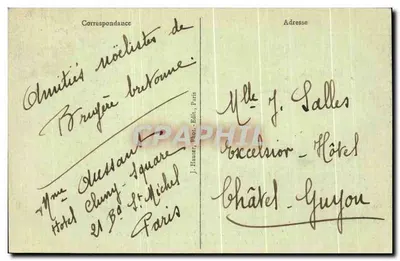 Correspondance
Adresse
Amitiés noëlistes de
Bruyère bretonne.
Mme Aussant
Hotel Cluny-Square
21 Bd St Michel
Paris
J. Hauser, Phot.-Edit., Paris
Mlle J. Salles
Excelsior-Hôtel
Châtel-Guyon
CPHARTH